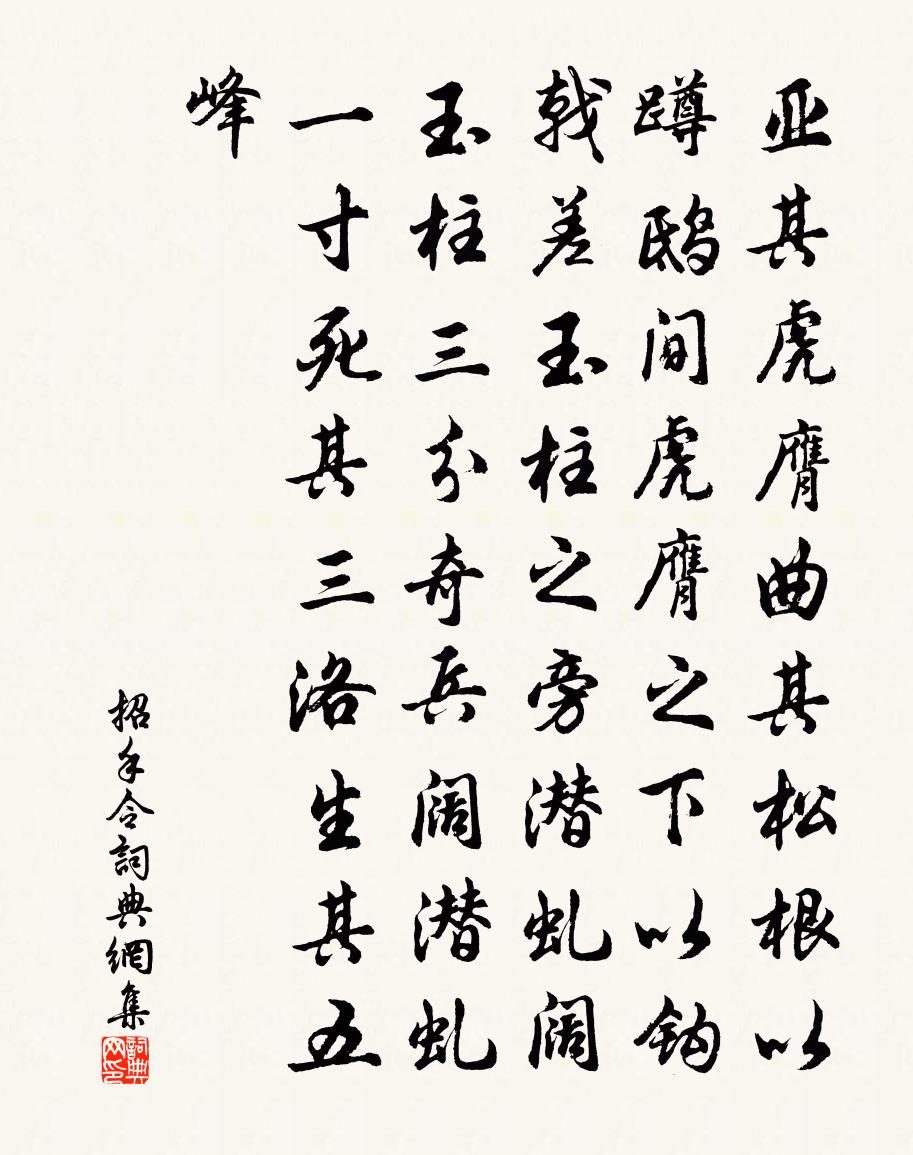 亚其虎膺曲其松根以
蹲鸱间虎膺之下以钩
戟差玉柱之旁潜虬阔
玉柱三分奇兵阔潜虬
一寸死其三洛生其五
峰
招手令詞典網集
詞典网印